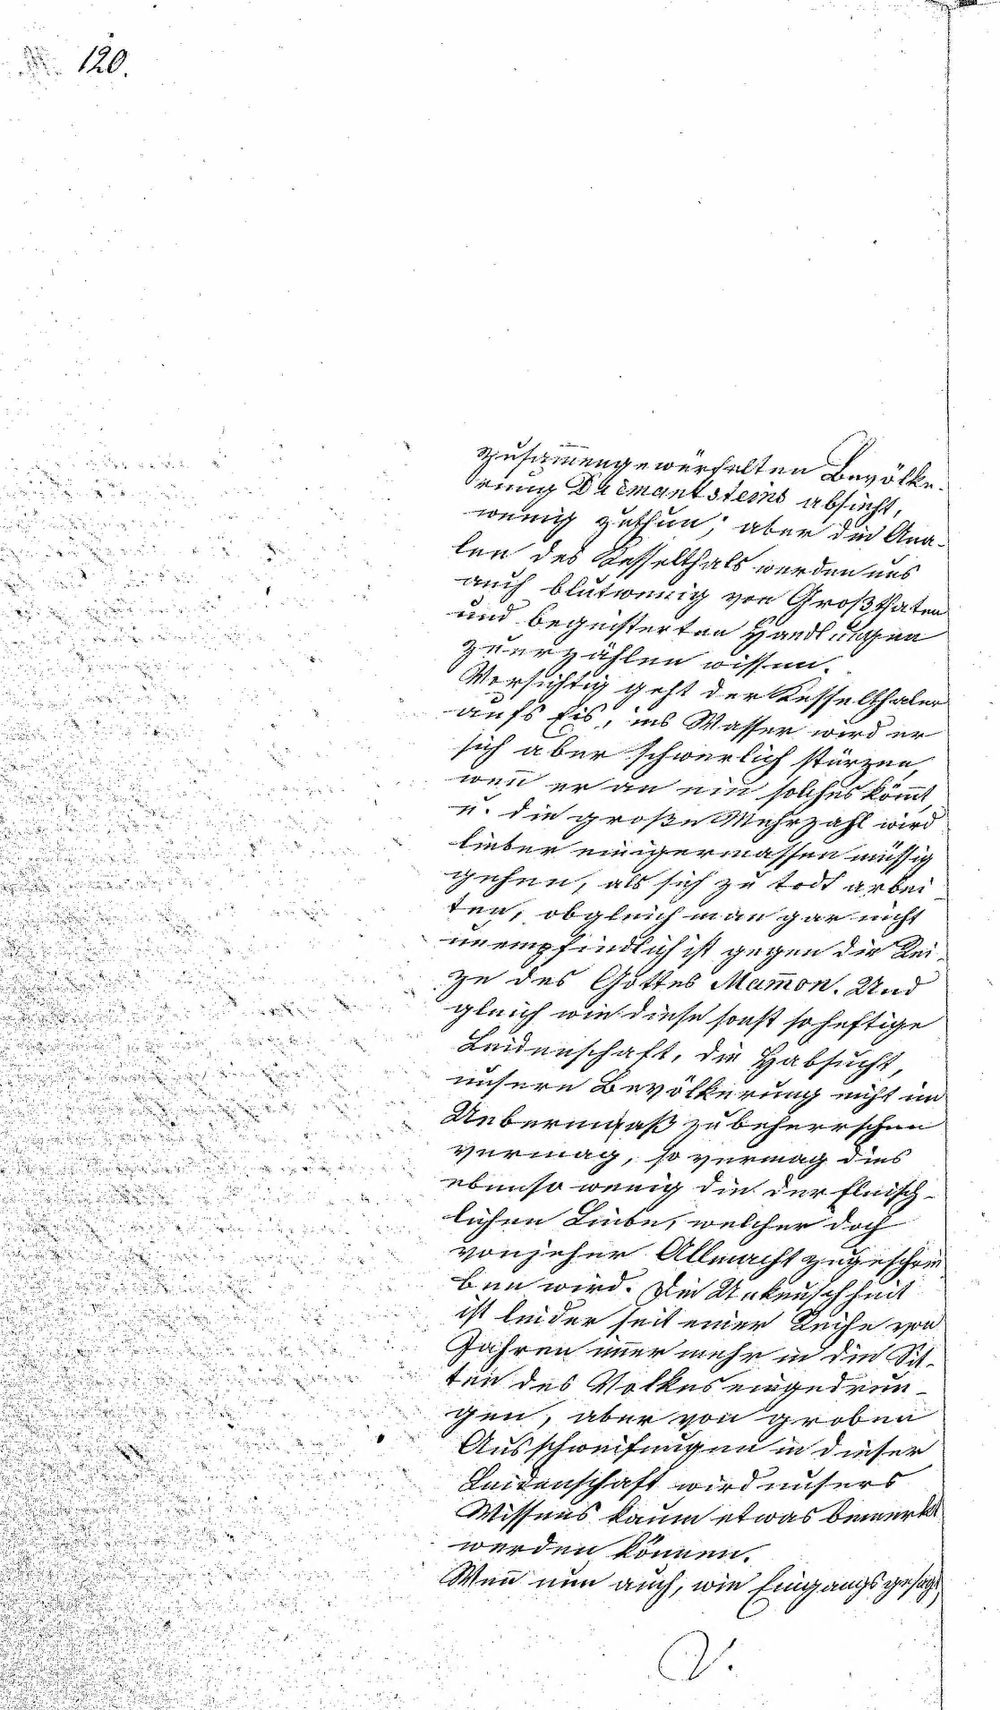 120.
zusam̅engewürfelten Bevölke-
rung Diemantsteins absieht,
wenig zuthun; aber die Ana-
len des Kesselthals werden uns
auch blutwenig von Großthaten
und begeisterten Handlungen
zuerzählen wissen.
Vorsichtig geht der Kesselthaler
aufs Eis, ins Wasser wird er
sich aber schwerlich stürzen,
wen̅ er an ein solches köm̅t,
u. die große Mehrzahl wird
lieber einigermassen müssig
gehen, als sich zu todt arbei-
ten, obgleich man gar nicht
unempfindlich ist gegen die Rei-
ze des Gottes Mam̅on. Und
gleich wie diese sonst so heftige
Leidenschaft, die Habsucht,
unsere Bevölkerung nicht im
Uebermaß zubeherrschen
vermag, so vermag dies
ebenso wenig die der fleisch-
lichen Liebe, welcher doch
vonjeher Allmacht zugeschrie
ben wird. Die Unkeuschheit
ist leider seit einer Reihe von
Jahren im̅er mehr in die Sit-
ten des Volkes eingedrun-
gen, aber von groben
Ausschweifungen in dieser
Leidenschaft wird unsers
Wissens kaum etwas bemerkt
werden können.
Wen̅ nun auch, wie Eingangs gesagt,
V.